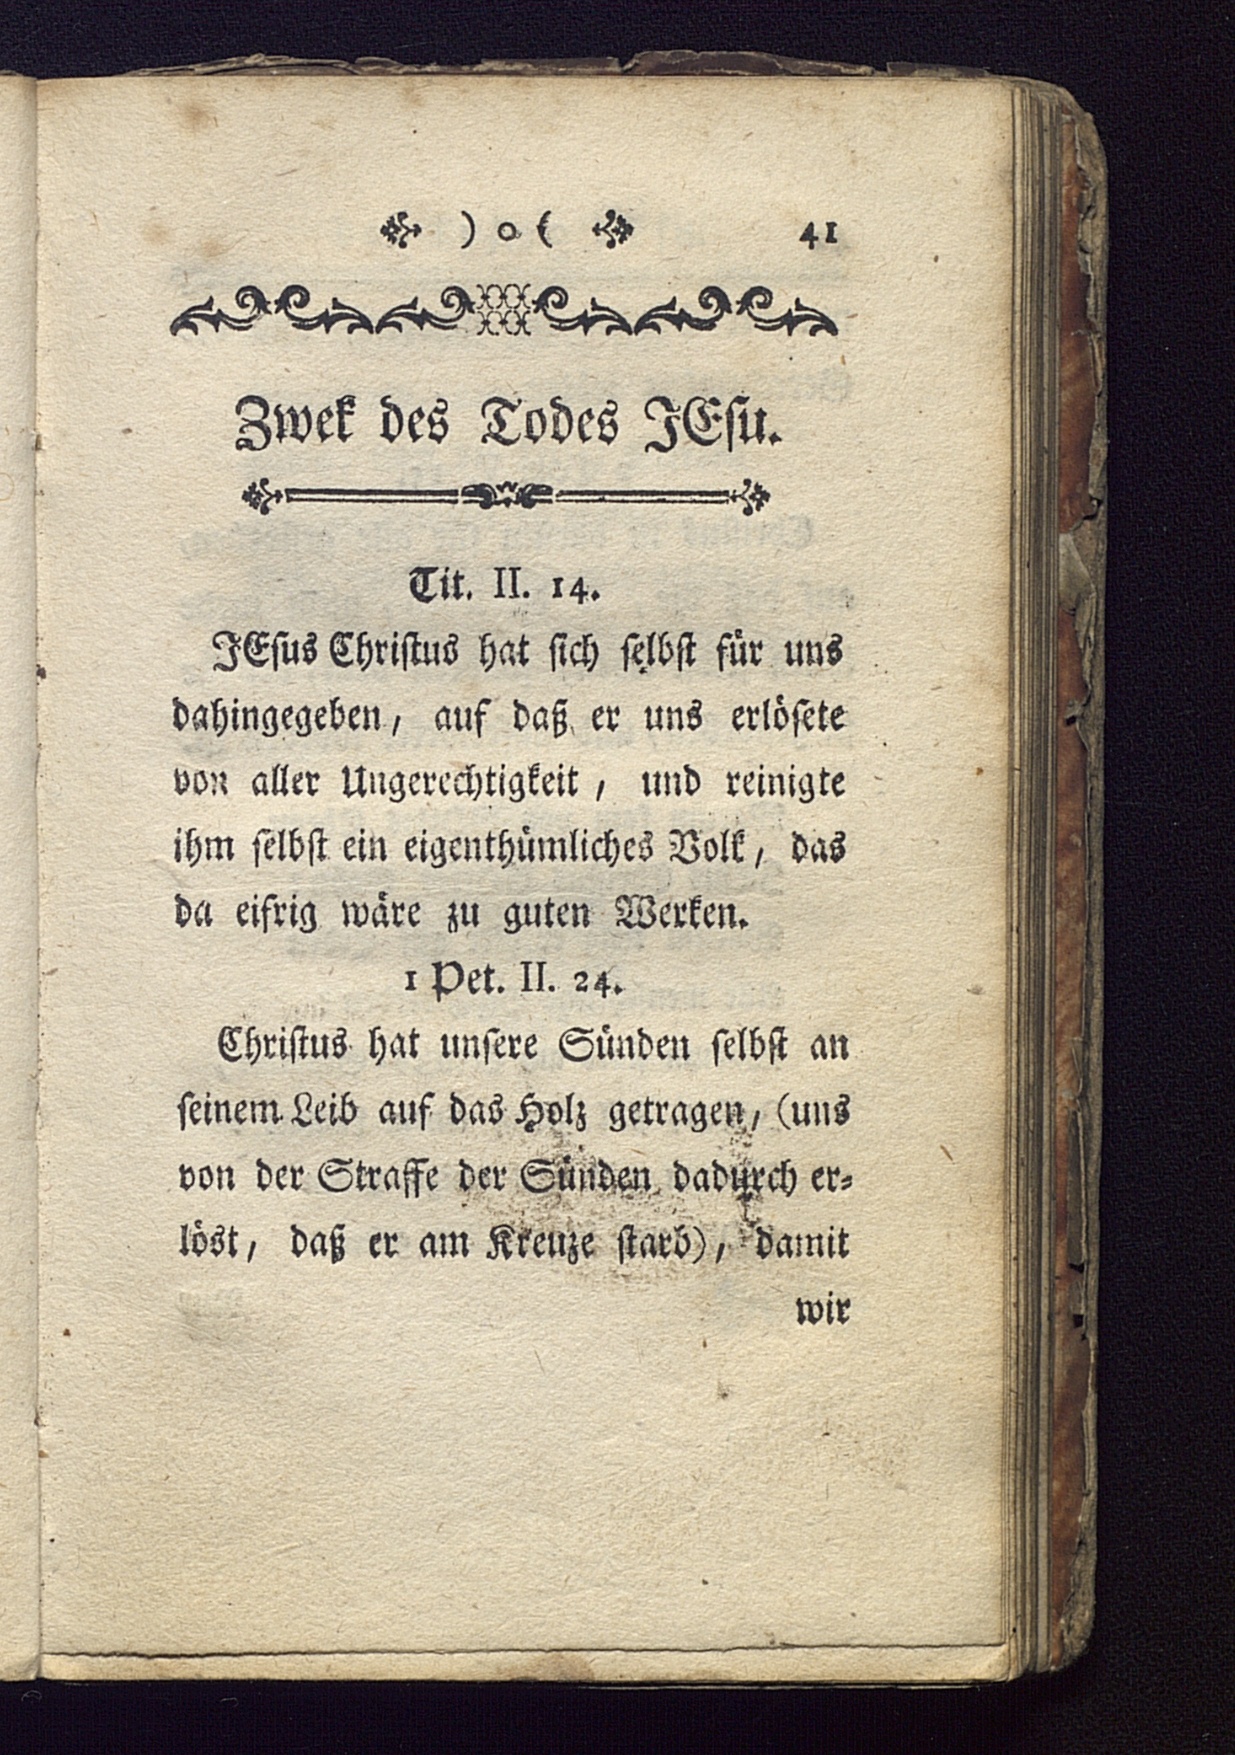 ) o ( 41
Zwek des Todes JEsu.
Tit. II. 14.
JEsus Christus hat sich selbst für uns
dahingegeben, auf daß er uns erlösete
von aller Ungerechtigkeit, und reinigte
ihm selbst ein eigenthümliches Volk, das
da eifrig wäre zu guten Werken.
1 Pet. II. 24.
Christus hat unsere Sünden selbst an
seinem Leib auf das Holz getragen, (uns
von der Straffe der Sünden dadurch er-
löst, daß er am Kreuze starb), damit
wir